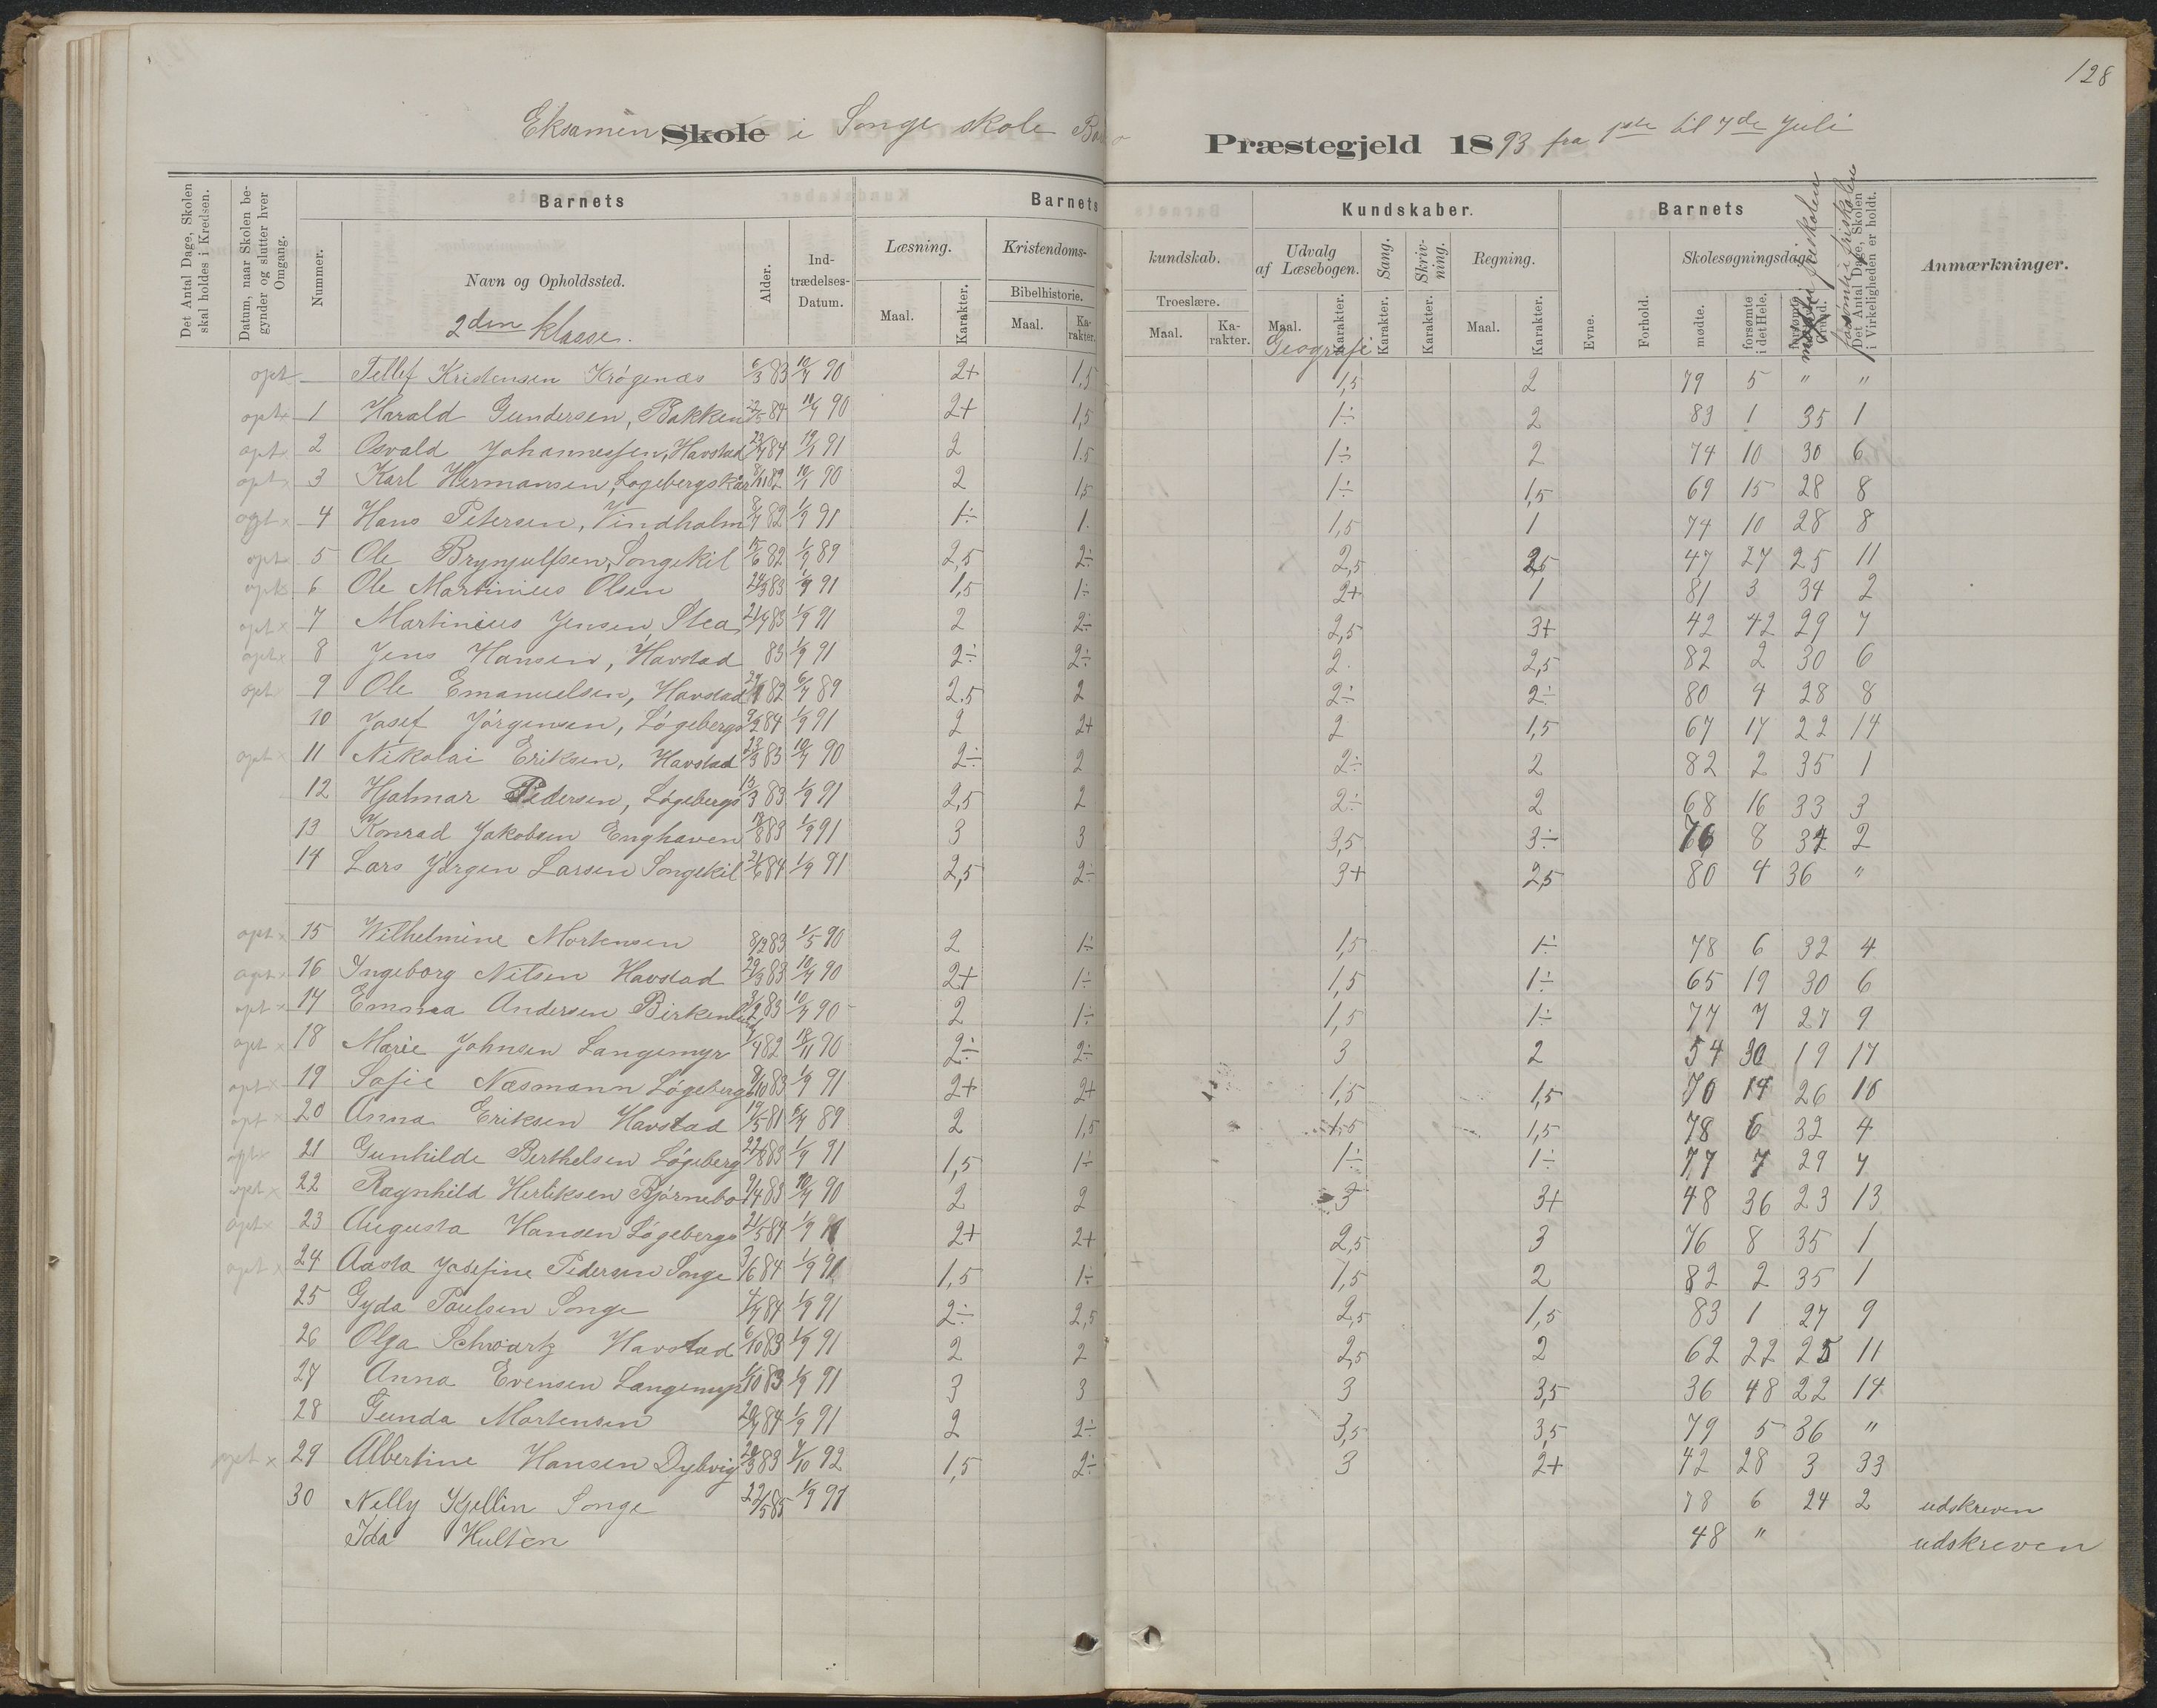 128
Eksamen Skole i Songe skole Præstegjeld 1893 fra 1ste til 7de Juli
Det Antal Dage, Skolen skal holdes i Kredsen.
Datum, naar Skolen begynder og slutter hver Omgang.
Barnets
Nummer.
Navn og Opholdssted.
Alder.
Indtrædelses-Datum.
Barnets Kundskaber.
Læsning.
Maal.
Karakter.
Kristendomskundskab.
Bibelhistorie.
Maal.
Karakter.
Troeslære.
Maal.
Karakter.
Udvalg af Læsebogen.
Maal.
Karakter.
Geografi
Sang.
Karakter.
Skrivning.
Karakter.
Regning.
Maal.
Karakter.
Barnets
Evne.
Forhold.
Skolesøgningsdage
mødte.
forsømte i det Hele.
Det Antal Dage, Skolen i Virkeligheden er holdt.
Anmærkninger.
2den klasse.
opt Tellef Kristensen Krøgenæs 6/3 83 10/7 90 2+ 1,5 1,5 2 79 5 " "
opt x 1 Harald Gundersen, Bakken 84 90 2+ 1,5 1÷ 2 83 1 35 1
opt x 2 Osvald Johannessen, Havstad 84 91 2 1.5 1÷ 2 74 10 30 6
opt x 3 Karl Hermansen, Løgebergskår 82 90 2 1,5 1÷ 1,5 69 15 28 8
opt x 4 Hans Petersen, Vindholm 82 1/9 91 1÷ 1 1,5 1 74 10 28 8
opt x 5 Ole Brynjulfsen, Songekil 15/6 82 89 2,5 2÷ 2,5 2,5 47 27 25 11
opt x 6 Ole Martinius Olsen 24/3 83 1/9 91 1,5 1÷ 2+ 1 81 3 34 2
opt x 7 Martinius Jensen, Stea 83 1/9 91 2 2÷ 2,5 3+ 42 42 29 7
opt x 8 Jens Hansen, Havstad 83 1/9 91 2÷ 2÷ 2. 2,5 82 2 30 6
opt 9 Ole Emanuelsen, Havstad 82 6/7 89 2.5 2 2÷ 2÷ 80 4 28 8
10 Josef Jørgensen, Løgebergs 9/2 84 1/9 91 2 2+ 2 1,5 67 17 22 14
opt x 11 Nikolai Eriksen, Havstad 23/3 83 10/7 90 2÷ 2 2÷ 2 82 2 35 1
12 Hjalmar Pedersen, Løgebergs 13/3 83 1/9 91 2,5 2 2÷ 2 68 16 33 3
13 Konrad Jakobsen Enghaven 83 1/9 91 3 3 3,5 3÷ 76 8 34 2
14 Lars Jørgen Larsen Songekil 21/6 84 1/9 91 2,5 2÷ 3+ 2,5 80 4 36 "
opt x 15 Wilhelmine Mortensen 8/12 83 1/5 90 2 1÷ 1,5 1÷ 78 6 32 4
opt x 16 Ingeborg Nilsen Havstad 29/3 83 10/7 90 2+ 1÷ 1,5 1÷ 65 19 30 6
opt x 17 Emma Andersen Birkenlund 83 10/7 90 2 1÷ 1,5 1÷ 77 7 27 9
opt x 18 Marie Johnsen Langemyr 82 18/11 90 2÷ 2÷ 3 2 54 30 19 17
opt x 19 Sofie Næsmann Løgebergs 9/10 83 1/9 91 2+ 2+ 1,5 1,5 70 14 26 10
opt x 20 Anna Eriksen Havstad 19/5 81 6/7 89 2 1,5 1,5 1,5 78 6 32 4
opt x 21 Gunhilde Berthelsen Løgeberg 22/8 83 1/9 91 1,5 1÷ 1÷ 1÷ 77 7 29 7
opt x 22 Ragnhild Henriksen Bjørnebo 9/4 83 10/7 90 2 2 3 3+ 48 36 23 13
opt x 23 Augusta Hansen Løgebergs 21/5 84 1/9 91 2+ 2+ 2,5 3 76 8 35 1
opt x 24 Aasta Josefine Pedersen Songe 3/6 84 1/9 91 1,5 1÷ 1,5 2 82 2 35 1
25 Gyda Poulsen Songe 84 1/9 91 2÷ 2,5 2,5 1,5 83 1 27 9
26 Olga Schwartz Havstad 6/10 83 1/9 91 2 2 2,5 2 62 22 25 11
27 Anna Evensen Langemyr 83 1/9 91 3 3 3 3,5 36 48 22 14
28 Gunda Mortensen 84 1/9 91 2 2÷ 3,5 3,5 79 5 36 "
opt x 29 Albertine Hansen Dybvig 83 92 1,5 2÷ 3 2+ 42 28 3 33
30 Nelly Kjellin Songe 22/5 85 1/9 91 78 6 24 2 udskreven
Ida Hultèn 48 " udskreven